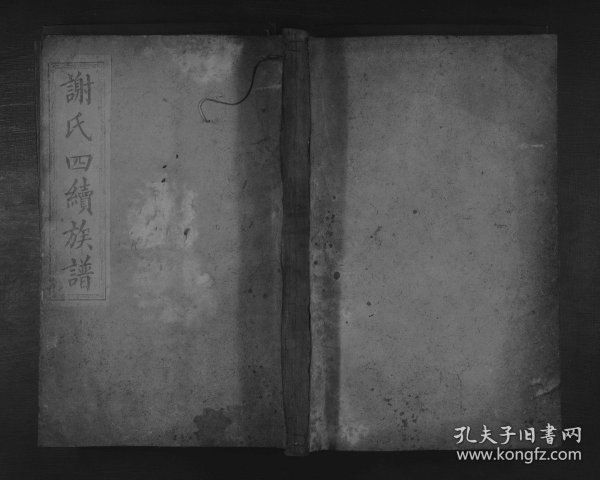 謝氏四續族譜
孔夫子旧書网
www.kongfz.com